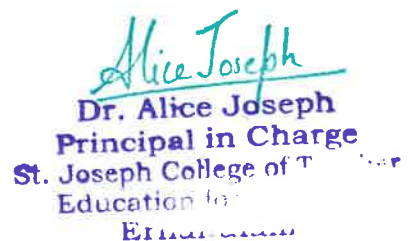 Alice Joseph
Dr. Alice Joseph
Principal in Charge
St. Joseph College of
Education